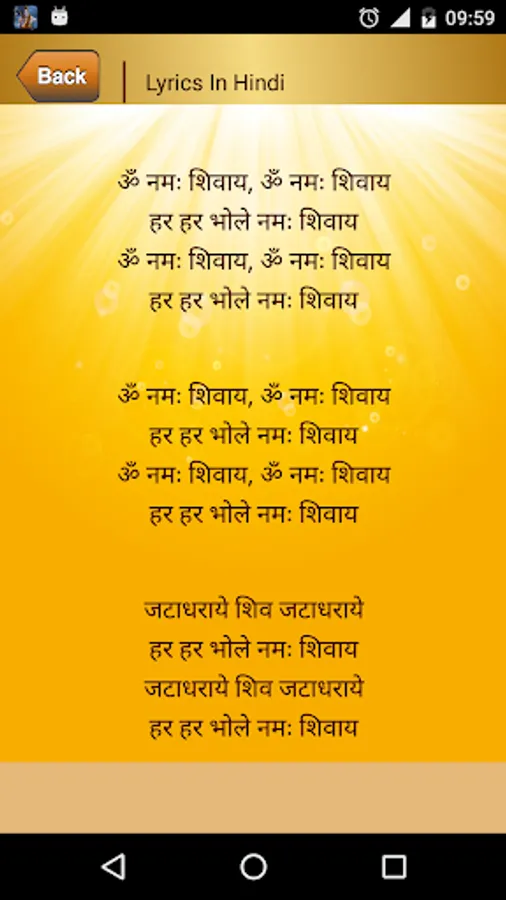 09:59
Back
Lyrics In Hindi
ॐ नमः शिवाय, ॐ नमः शिवाय
हर हर भोले नमः शिवाय
ॐ नमः शिवाय, ॐ नमः शिवाय
हर हर भोले नमः शिवाय
ॐ नमः शिवाय, ॐ नमः शिवाय
हर हर भोले नमः शिवाय
ॐ नमः शिवाय, ॐ नमः शिवाय
हर हर भोले नमः शिवाय
जटाधराये शिव जटाधराये
हर हर भोले नमः शिवाय
जटाधराये शिव जटाधराये
हर हर भोले नमः शिवाय